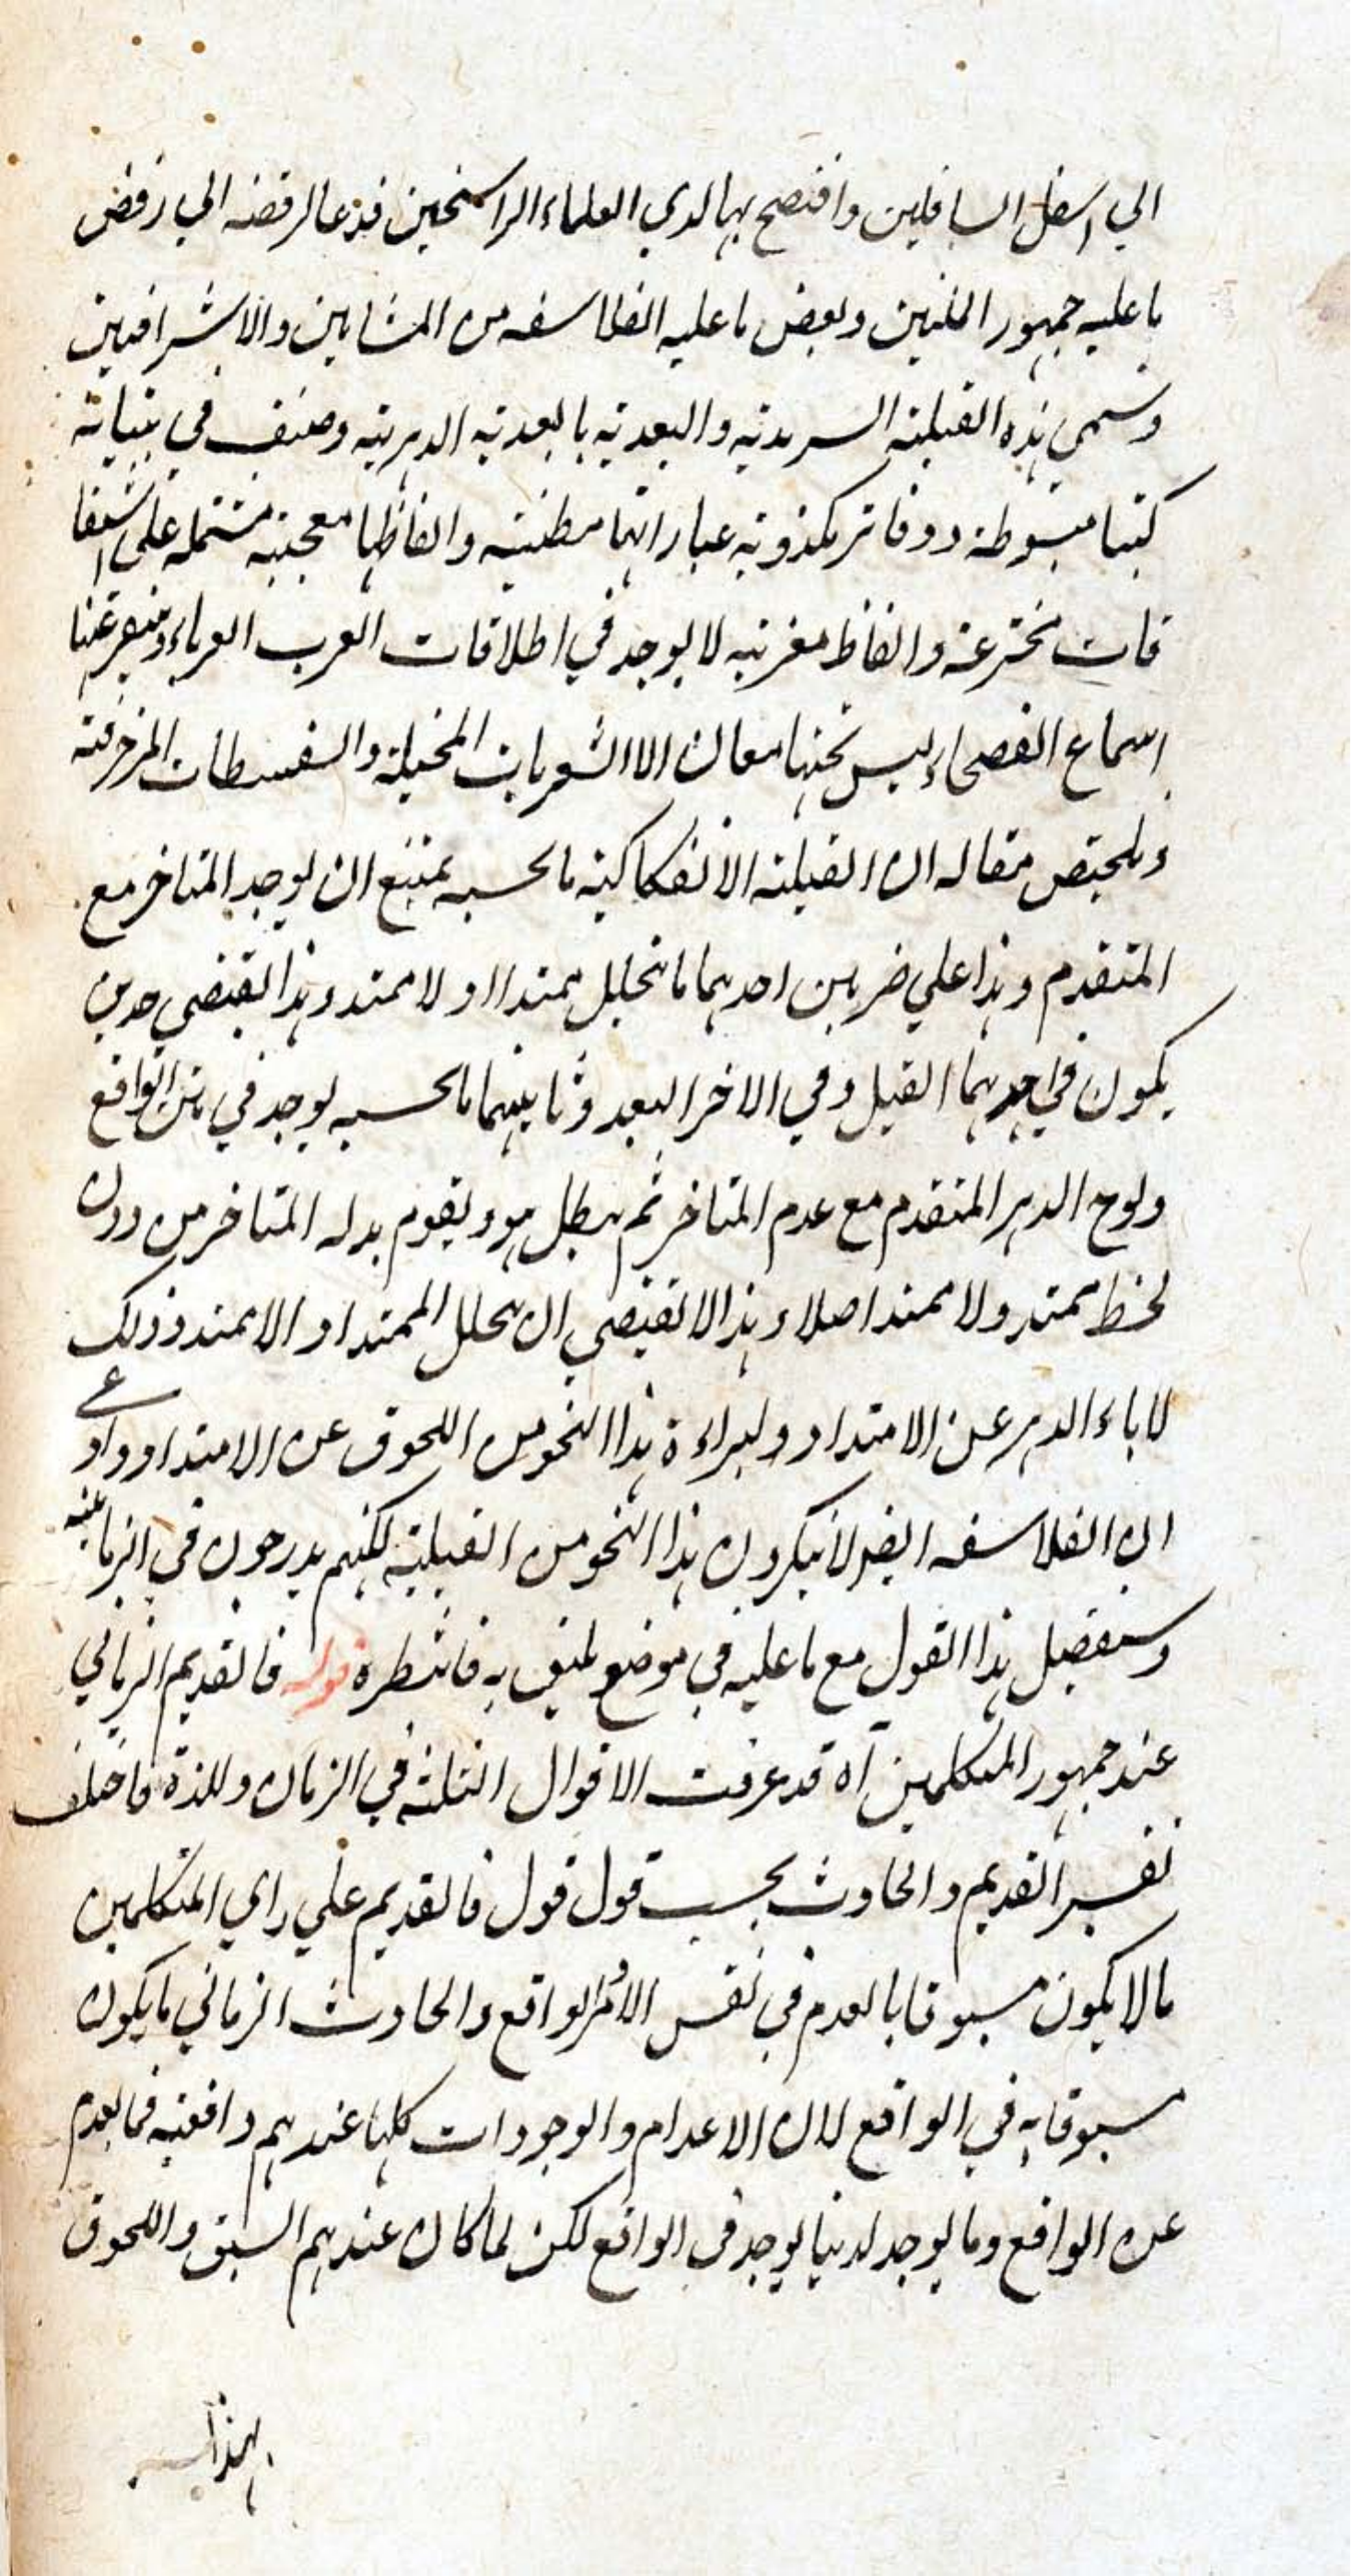 الي اسفل السافلين وافتضح بها لدي العلماء الراسخين فدعا لرفضه الي رفض
ما عليه جمهور المليين وبعض ما عليه الفلاسفه من المشايين والاشراقيين
وسمي هذه القبلية السرمدية والبعدية بالبعدية الدهرية وصنف في بيانه
كتبا مبسوطة ودفاتر عباراتها مطنبة والفاظها معجبة مشتمله علي اشتقا
قات مخترعة والفاظ مغربه لا يوجد في اطلاقات العرب العرباء
اسماع الفصحاء ليس تحتها معان الا الشعريات المخيلة والسفسطات المزخرفة
وملخص مقاله ان القبلية الانفكاكية ما بحسبه يمتنع ان يوجد المتاخر مع
المتقدم وهذا علي ضربين احدهما ما تخلل ممتدا او لا ممتد وهذا يقتضي حدين
يكون في احدهما القبل وفي الاخر البعد وثانيهما ما بحسبه يوجد في متن الواقع
ولوح الدهر المتقدم مع عدم المتاخر ثم يبطل هو ويقوم بدله المتاخر من دون
لحظ ممتد ولا ممتد اصلا وهذا لا يقتضي ان يتخلل الممتد او اللا ممتد وذلك
لاباء الدهر عن الامتداد ولبراءة هذا النحو من اللحوق عن الامتداد وادعي
ان الفلاسفه ايضا لا ينكرون هذا النحو من القبلية لكنهم يدرجون في الزمانية
وسنفصل هذا القول مع ما عليه في موضع يليق به فانتظره قوله فالقديم الزماني
عند جمهور المتكلمين آه قد عرفت الاقوال الثلثة في الزمان وللذة فاختلف
تفسير القديم والحادث بحسب قول قول فالقديم علي راي المتكلمين
ما لا يكون مسبوقا بالعدم في نفس الامر الواقع والحادث الزماني ما يكون
مسبوقا به في الواقع لان الاعدام والوجودات كلها عندهم واقعية فما يعدم
عن الواقع وما يوجد لدينا يوجد في الواقع لكن لما كان عندهم السبق واللحوق
بهذا